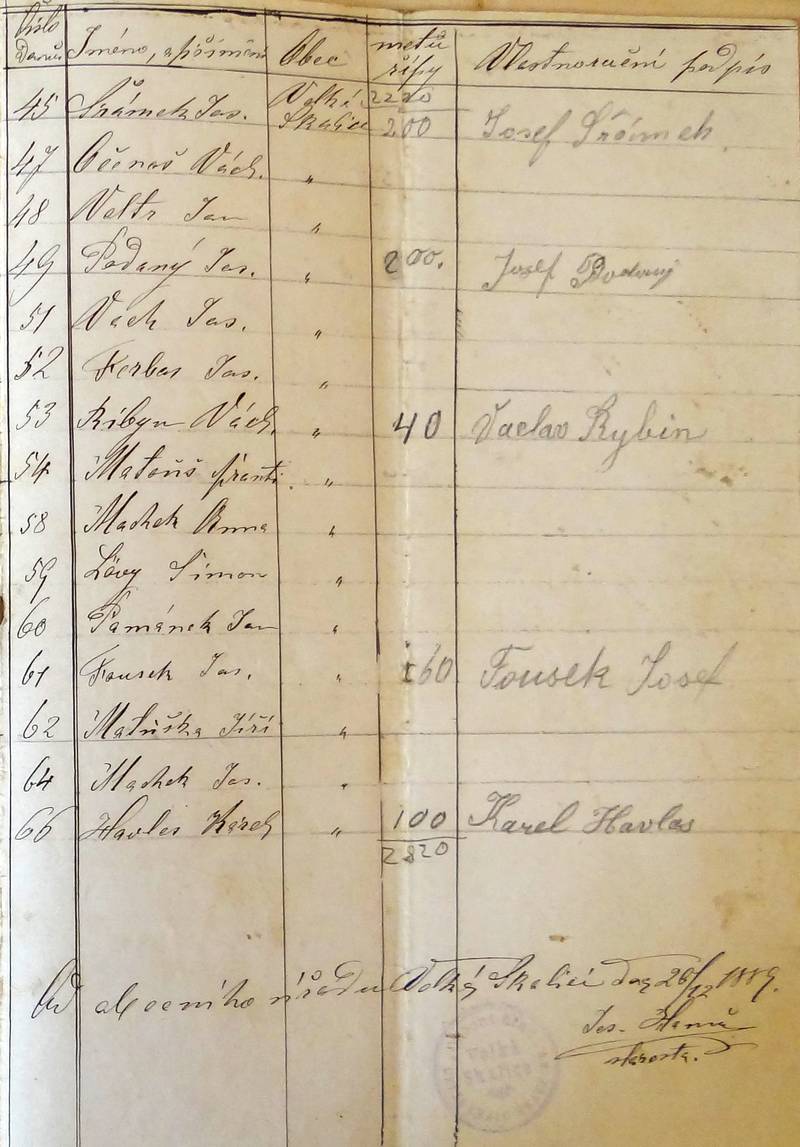 Číslo Jméno, a přímění Obec metů řípy Vlastnoruční podpis
45 Šrámek Jos. Velká Skalice 2220 200 Josef Šrámek
47 Očenaš Václ. "
48 Veltr Jan "
49 Podaný Jos. " 200. Josef Podaný
51 Vach Jos. "
52 Ferbas Jos. "
53 Ribyn Václ. " 40 Vaclav Rybin
54 Matouš Franti. "
58 Machek Anna "
59 Lövy Simon "
60 Jan "
61 Fousek Jos. " 160 Fousek Josef
62 Matuška Jiří "
64 Machek Jos. "
66 Havlas Karel " 100 Karel Havlas
2820
Od obecního úřadu Velká Skalici dne 26/12 1889.
Jos.
starosta.